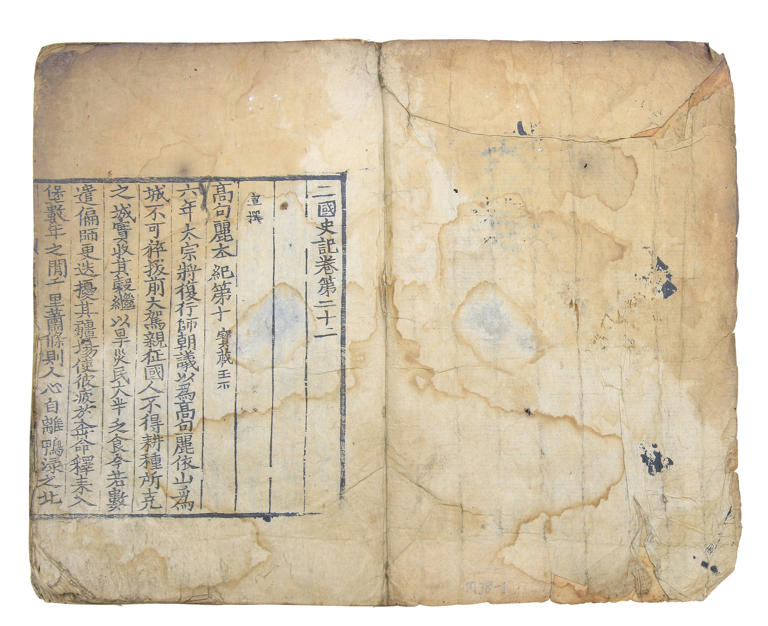 三國史記卷第二十二
宣撰
高句麗夲紀第十 寶藏王下
六年太宗將復行師朝議以爲高句麗依山爲
城不可猝拔前大駕親征國人不得耕種所克
之城實收其穀繼以旱災民太半乏食今若數
遣偏師更迭擾其疆場使彼疲於奔命釋耒入
堡數年之間千里蕭條則人心自離鴨淥之北